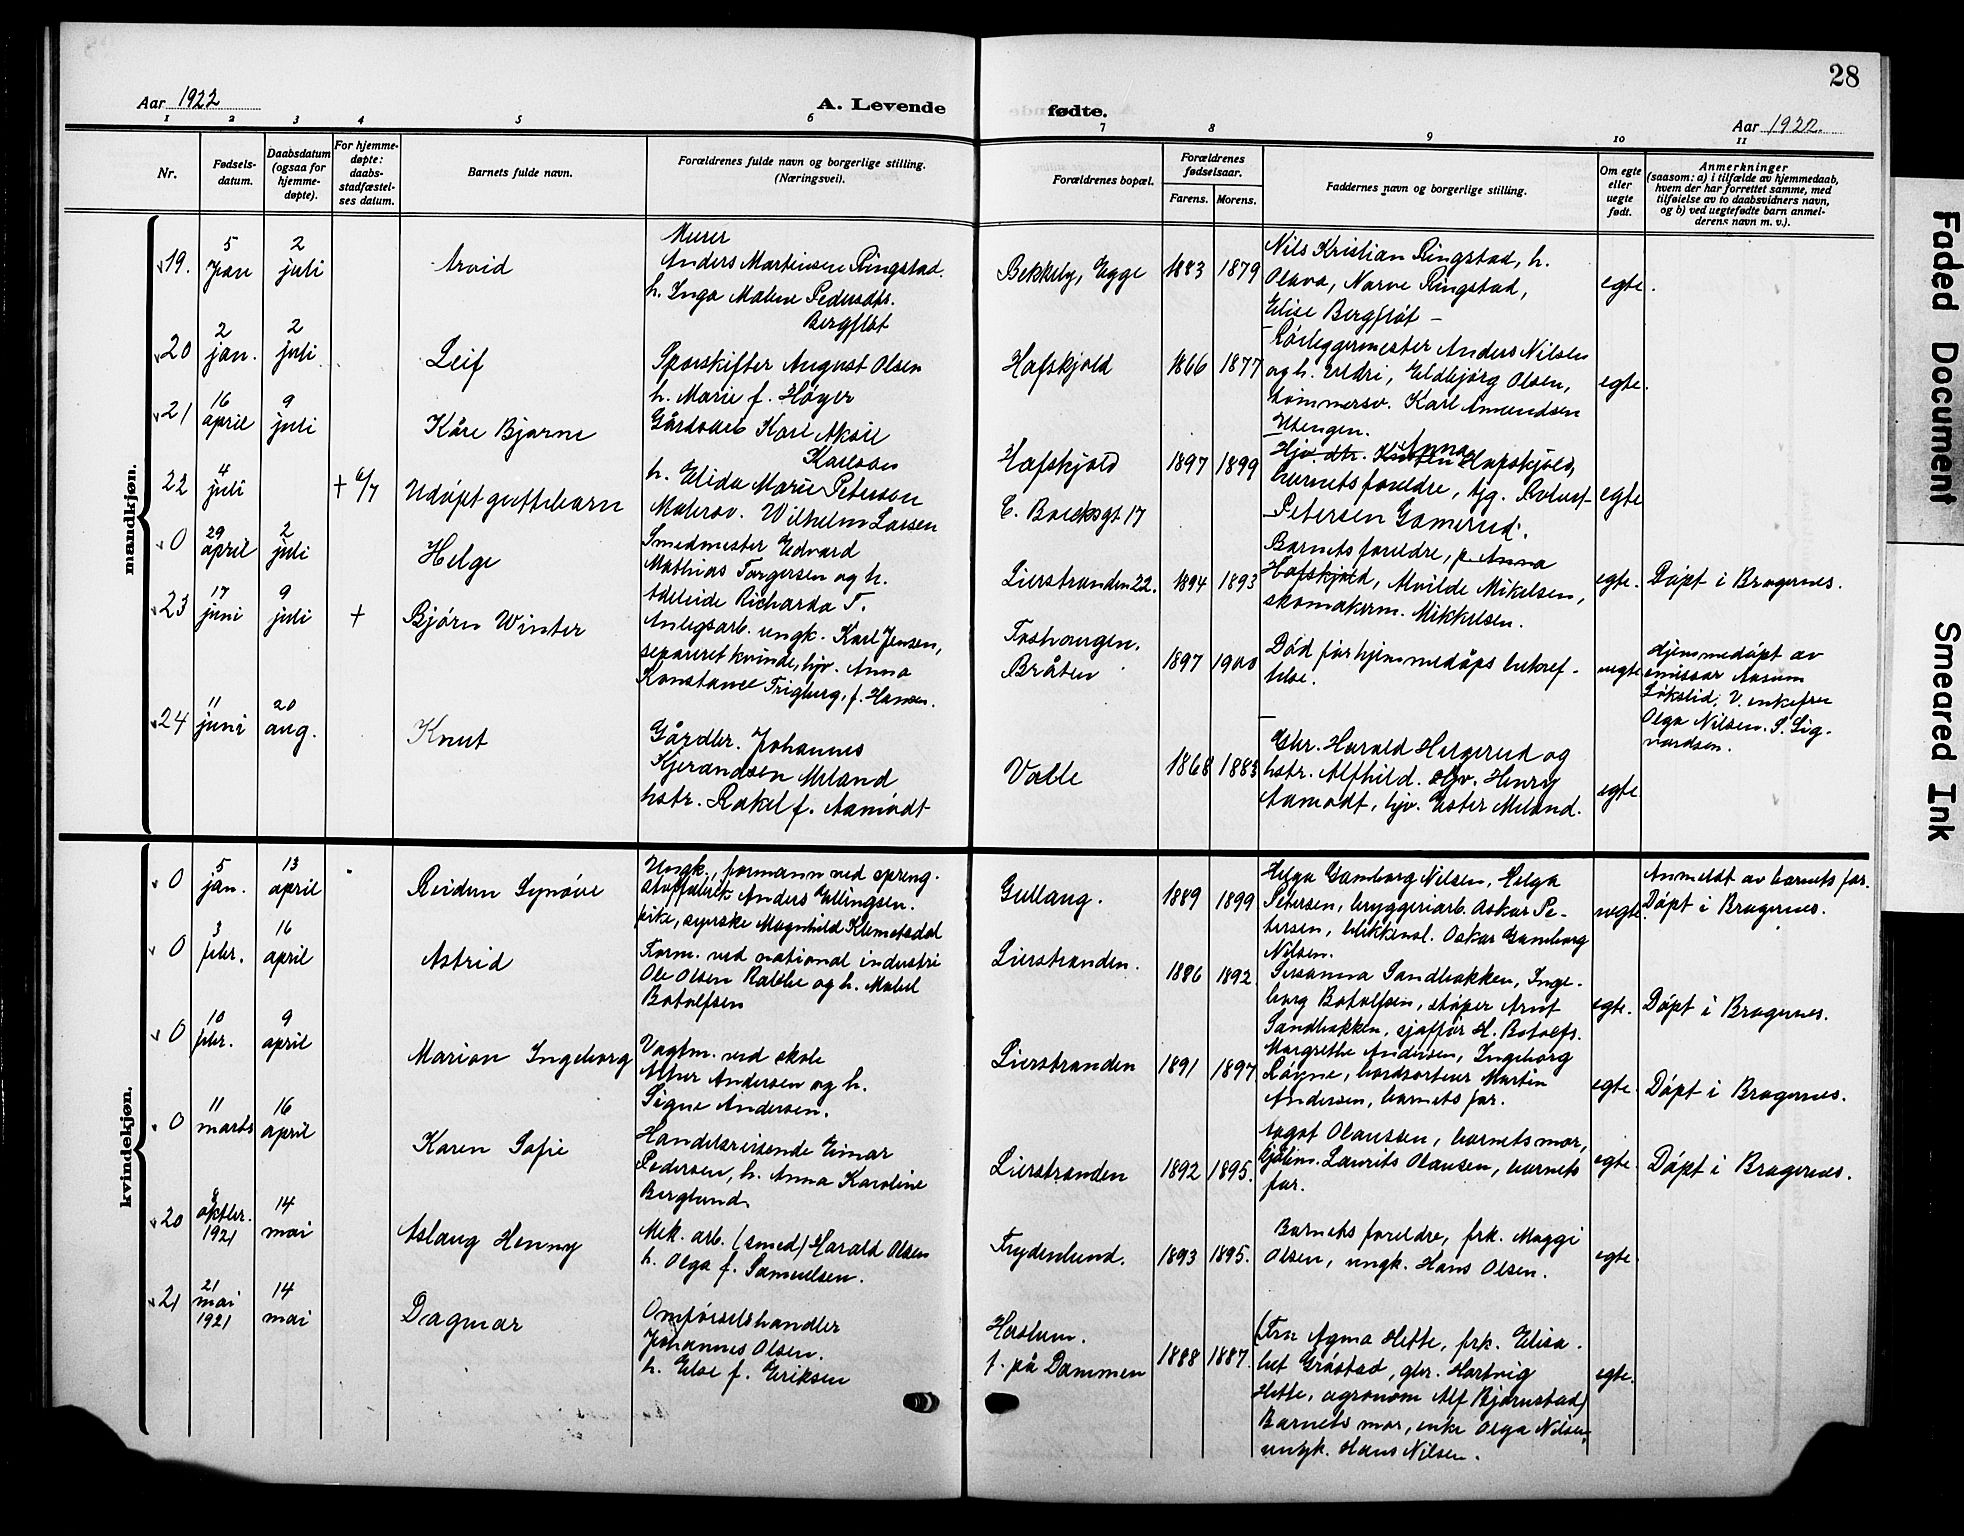 28
Aar 1922
A. Levende
fødte.
Aar 1922.
1 2 3 4 5 6 7 8 9 10 11
Nr.
Fødsels-
datum.
Daabsdatum
(ogsaa for
hjemme-
døpte).
For hjemme-
døpte:
daabs-
stadfæstel-
ses datum.
Barnets fulde navn.
Forældrenes fulde navn og borgerlige stilling.
(Næringsvei).
Forældrenes bopæl.
Forældrenes
fødselsaar.
Farens. Morens.
Faddernes navn og borgerlige stilling.
Om egte
eller
uegte
født.
Anmerkninger
(saasom: a) i tilfælde av hjemmedaab,
hvem der har forrettet samme, med
tilføielse av to daabsvidners navn,
og b) ved uegtefødte barn anmel-
derens navn m. v.).
mandkjøn.
19.
5
Jan
2
juli
Arvid
Murer
Anders Martinsen Ringstad.
h. Inga Malene Pedersdtr.
Bergfløt
Bekkeby, Egge
1883 1879
Nils Kristian Ringstad, h.
Olava, Narve Ringstad,
Elise Bergfløt –
egte.
20
2
jan.
2
juli
Leif
Sporskifter August Olsen
h. Marie f. Høyer
Hafskjold
1866 1877
Rørleggermester Anders Nilsen
og h. Uldri, Eldbjørg Olsen,
tømmersv. Karl Amundsen
Utengen.
egte.
21
16
april
9
juli
Kåre Bjarne
Gårdsarb Karl Aksel
Karlsen
h. Elida Marie Petersen
Hafskjold
1897 1899
Hjv. dtr. Anna Hafskjold,
barnets foreldre, tjg. Roluf
Petersen Gamerud.
egte
22
4
juli
+ 6/7
Udøpt guttebarn
Malersv. Wilhelm Larsen
C. Boecksgt 17
0
29
april
2
juli
Helge
Smedmester Edvard
Mathias Torgersen og h.
Adeleide Richarda T.
Lierstranden 22.
1894 1893
Barnets foreldre, p. Anna
Hafskjold, Alvilde Mikelsen,
skomakerm. Mikkelsen.
egte.
Døpt i Bragernes.
23
17
juni
9
juli
+
Bjørn Winter
Anlegsarb. ungk. Karl Jensen,
separeret kvinde, hjv. Anna
Konstance Trigburg, f. Hansen.
Toshaugen.
Bråten
1897 1900
Død før hjemmedåps bekref-
telse.
uegte
Hjemmedøpt av
emissær Aasum
Løkslid; V. enkefru
Olga Nilsen. S. Sig-
vardsen.
24
11
juni
20
aug.
Knut
Gårdbr. Johannes
Kjerandsen Meland
hstr. Rakel f. Aamodt
Valle
1868 1883
Gbr. Harald Helgerud og
hstr. Alfhild. Hjv. Henry
Aamodt, hjv. Ester Meland.
egte
kvindekjøn.
0
5
jan.
13
april
Reidun Synøve
Ungk., formann ved spreng-
stoffabrik Anders Ellingsen.
pike, syerske Magnhild Klemetsdal
Gullaug.
1889 1899
Helga Gamborg Nilsen, Helga
Petersen, bryggeriarb. Oskar Pe-
tersen, blikkensl. Oskar Gamborg
Nilsen.
uegte
Anmeldt av barnets far.
Døpt i Bragernes.
0
3
febr.
16
april
Astrid
Form. ved national industri
Ole Olsen Rabbe og h. Mabel
Botolfsen
Lierstranden.
1886 1892
Susanna Sandbakken, Inge-
borg Botolfsen, støper Arnt
Sandbakken, sjaffør H. Botolfs.
egte.
Døpt i Bragernes.
0
10
febr.
9
april
Marion Ingeborg
Vagtm. ved skole
Albur Andersen og h.
Signe Andersen.
Lierstranden
1891 1897
Margrethe Andersen, Ingeborg
Røyne, bordsorterer Martin
Andersen, barnets far.
egte.
Døpt i Bragernes.
0
11
marts
16
april
Karen Sofie
Handelsreisende Einar
Pedersen, h. Anna Karoline
Berglund
Lierstranden
1892 1895.
Aagot Olaussen, barnets mor,
kjøbm. Laurits Olaussen, barnets
far.
egte.
Døpt i Bragernes.
20
8
oktbr.
1921
14
mai
Aslaug Henny
Mek. arb. (smed) Harald Olsen
h. Olga f. Samuelsen.
Frydenlund.
1893 1895.
Barnets foreldre, frk. Maggi
Olsen, ungk. Hans Olsen.
egte.
21
21
mai
1921
14
mai
Dagmar
Omførselshandler
Johannes Olsen.
h. Else f. Eriksen
Haslum.
f. på Dammen
1888 1887.
(Fru Agma Hette, frk. Elisa-
bet Gråstad, gbr. Hartvig
Hette, agronom Alf Bjørnstad)
Barnets mor, enke Olga Nilsen,
ungk. Hans Nilsen.
egte.
Faded Document
Smeared Ink